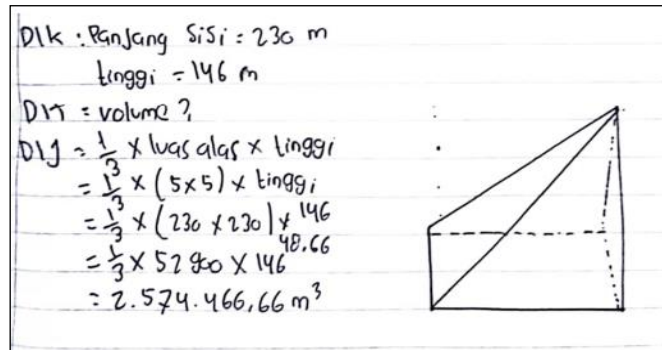 DIK : Panjang sisi = 230 m
tinggi = 146 m
DIT = volume ?
DIJ = 1/3 x luas alas x tinggi
= 1/3 x (5x5) x tinggi
= 1/3 x (230 x 230) x 146
48.66
= 1/3 x 52900 x 146
= 2.574.466,66 m³